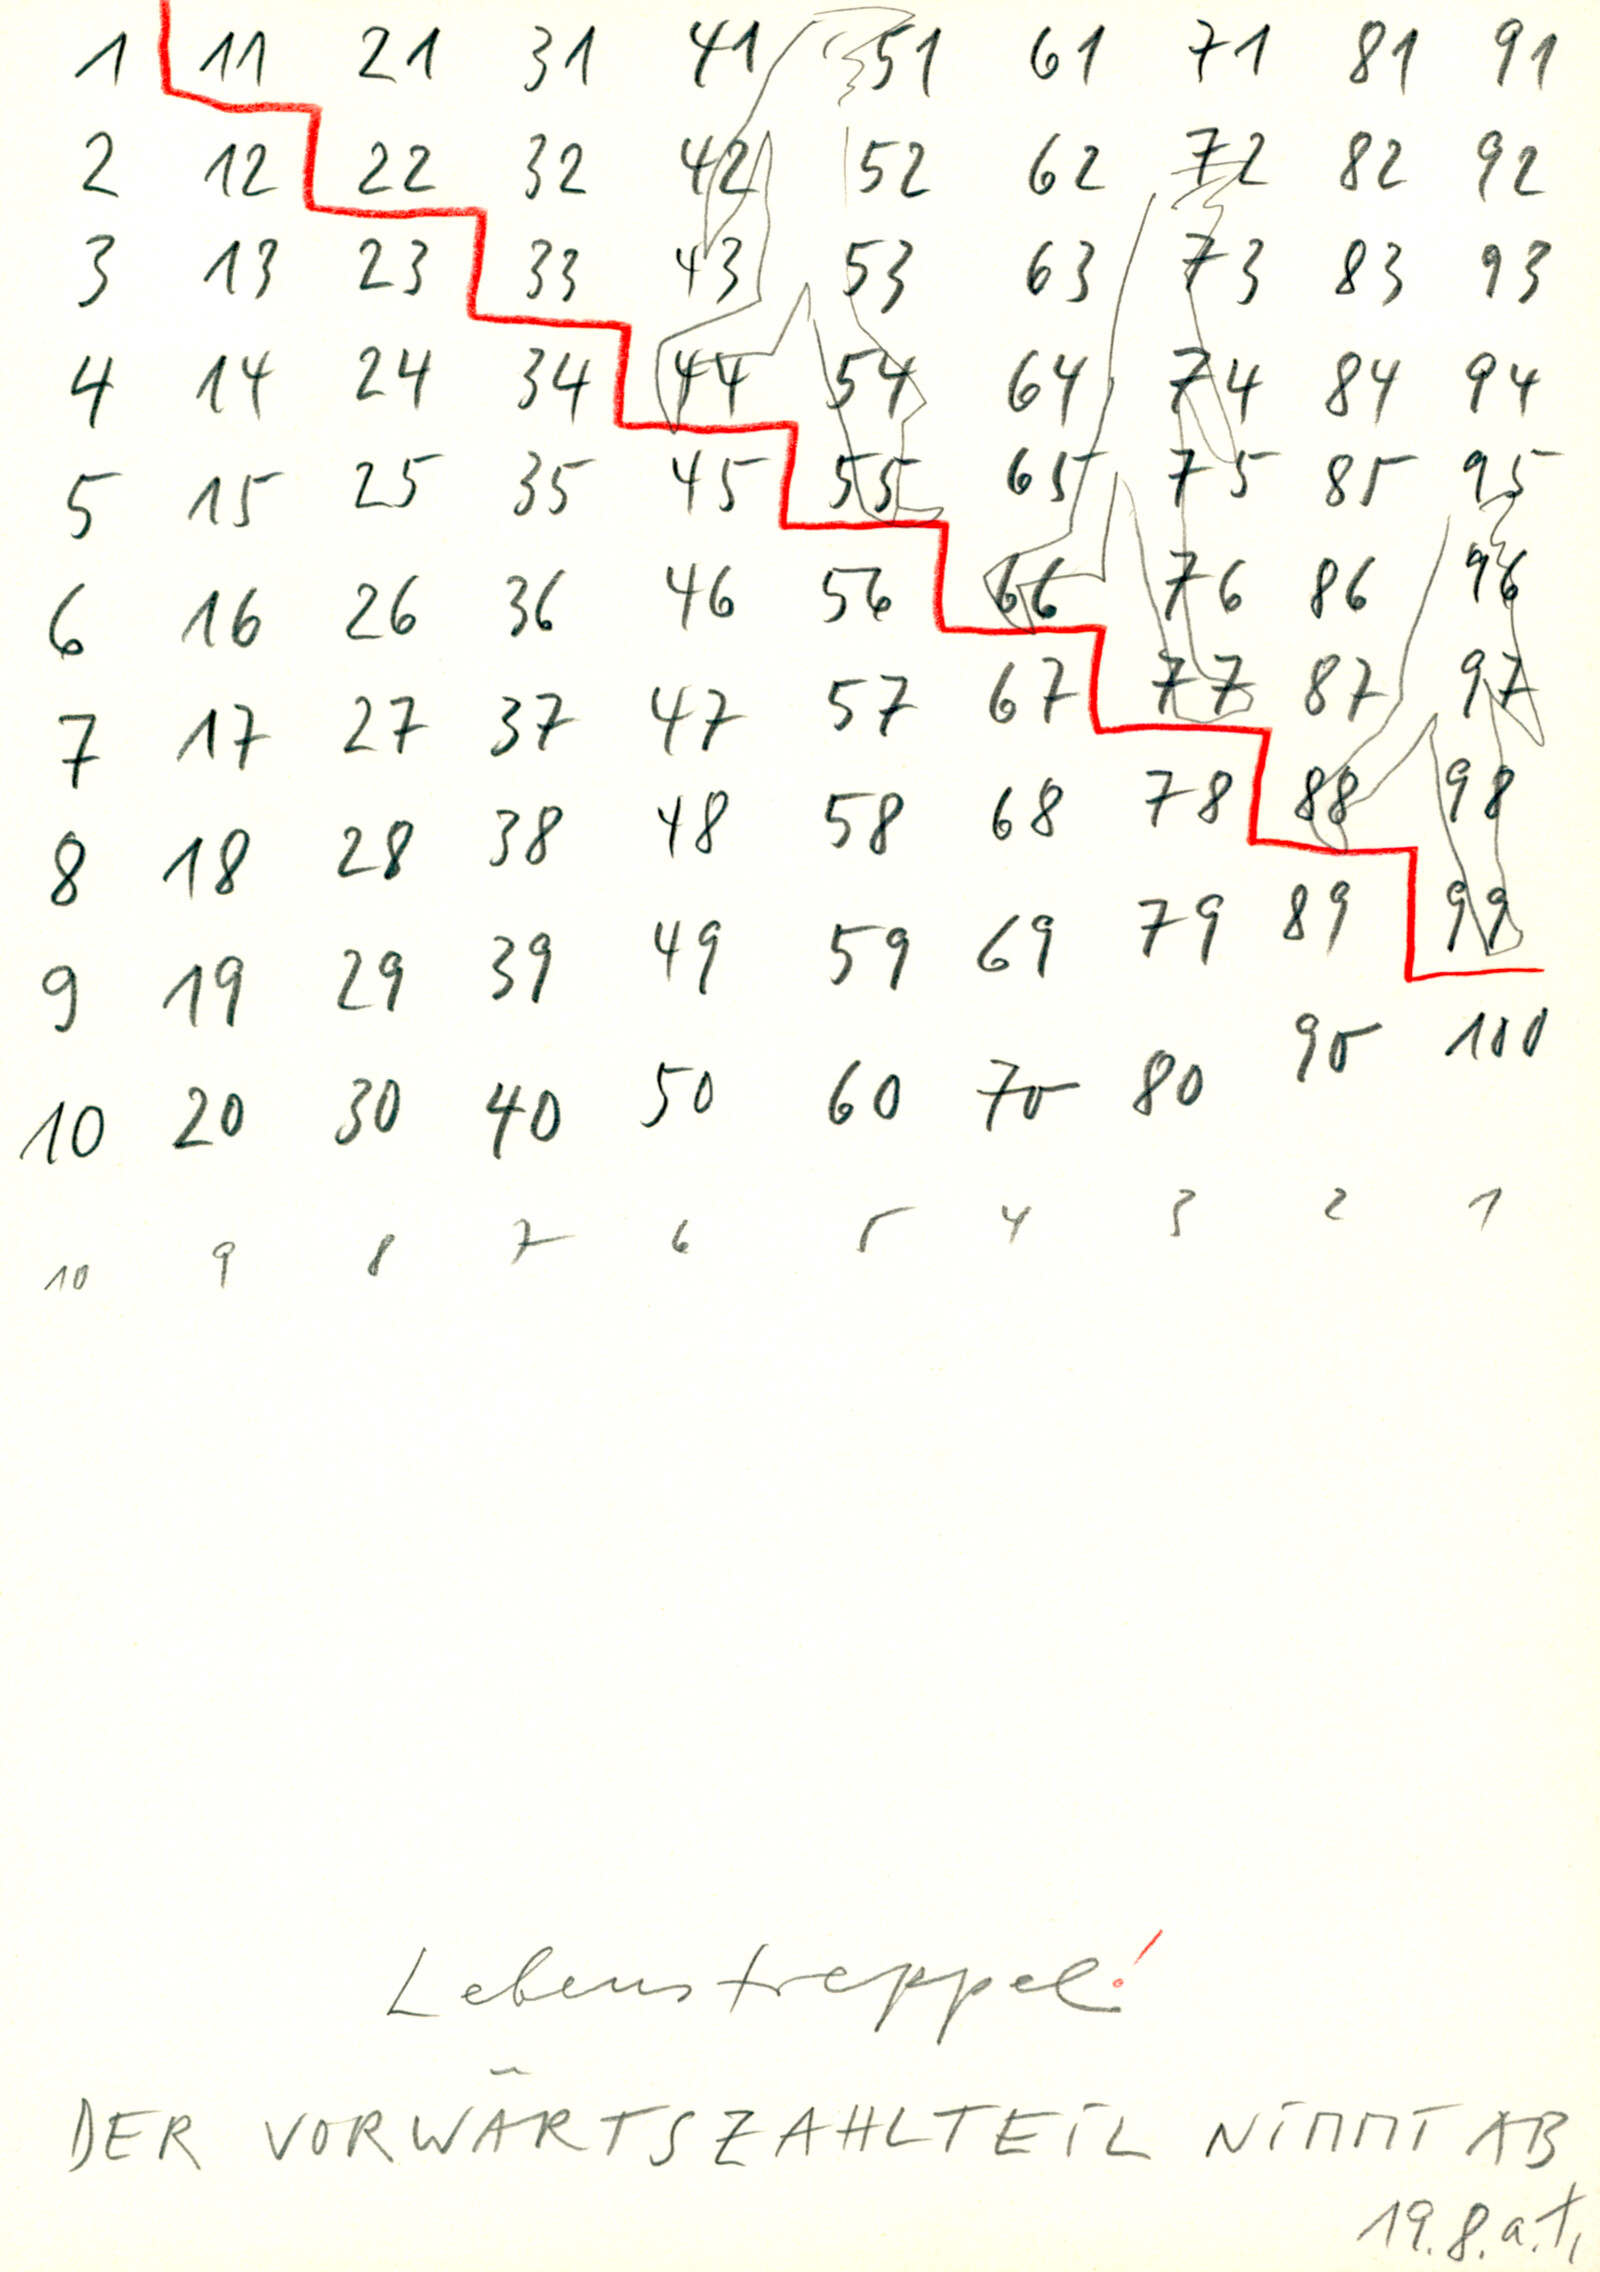 1 11 21 31 41 51 61 71 81 91
2 12 22 32 42 52 62 72 82 92
3 13 23 33 43 53 63 73 83 93
4 14 24 34 44 54 64 74 84 94
5 15 25 35 45 55 65 75 85 95
6 16 26 36 46 56 66 76 86 96
7 17 27 37 47 57 67 77 87 97
8 18 28 38 48 58 68 78 88 98
9 19 29 39 49 59 69 79 89 99
10 20 30 40 50 60 70 80 90 100
10 9 8 7 6 5 4 3 2 1
Lebenstreppe!
DER VORWÄRTSZAHLTEIL NIMMT AB
19.8.a.t.